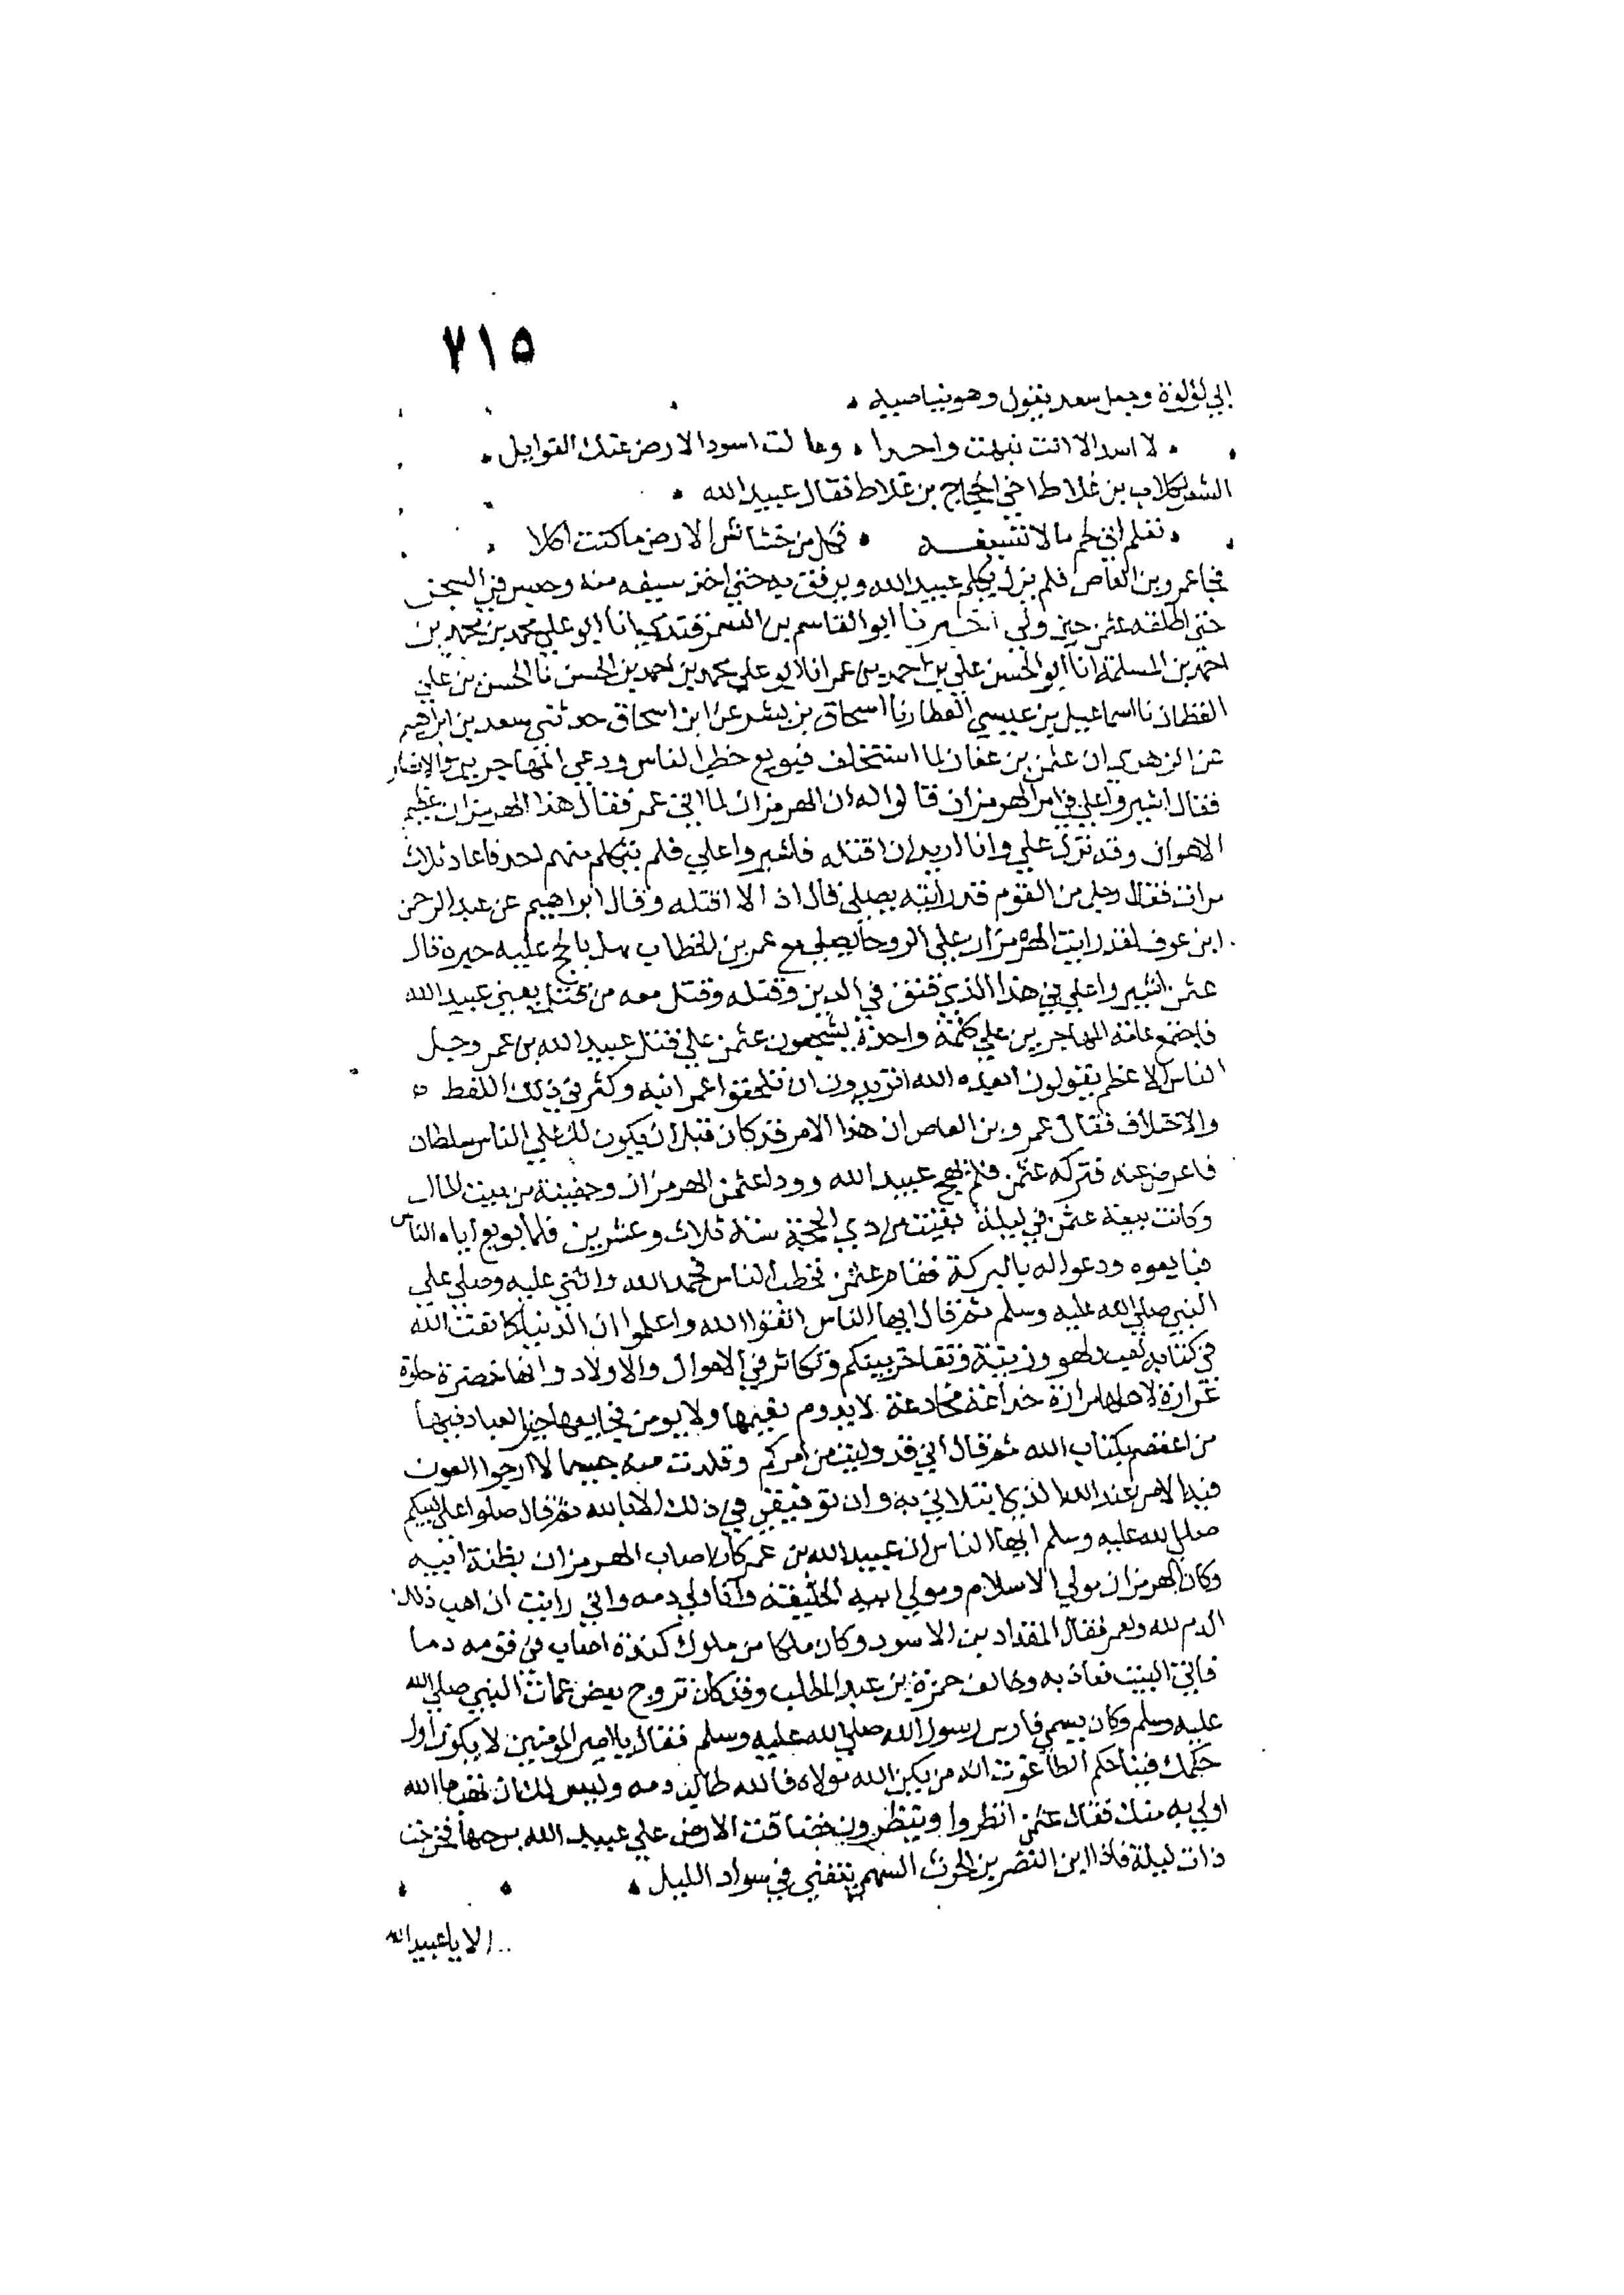 ٧١٥
ابي لؤلؤة وجعل سعد يقول وهو يناصيه
لا اسد الا انت نبهت واحدا وعالت اسود الارض عنك الغوايل
الشعر لكلاب بن علاط اخي الحجاج بن علاط فقال عبيد الله
تعلم اني لحم مالا تسيغه فكل من خشاش الارض ما كنت اكلا
فجا عمرو بن العاص فلم يزل يكلم عبيد الله ويرفق به حتى اخذ سيفه منه وحبس في السجن
حتى اطلقه عثمن حين ولي اخبرنا ابو القاسم بن السمرقندي انا ابو علي محمد بن محمد بن
احمد بن المسلمة انا ابو الحسن علي بن احمد بن عمر انا ابو علي محمد بن احمد بن الحسن نا الحسن بن علي
القطان نا اسماعيل بن عيسى العطار نا اسحاق بن بشر عن ابن اسحاق حدثني سعد بن ابراهيم
عن الزهري ان عثمن بن عفان لما استخلف فبويع خطب الناس ودعى المهاجرين والانصار
فقال اشيروا علي في امر الهرمزان قالوا له ان الهرمزان لما اتى عمر فقال هذا الهرمزان عظيم
الاهواز وقد نزل علي وانا اريد ان اقتله فاشيروا علي فلم يتكلم منهم احد فاعاد ثلاث
مرات فقال رجل من القوم قد رايته يصلي قال اذا لا اقتله وقال ابراهيم عن عبد الرحمن
ابن عوف لقد رايت الهرمزان على الروحا يصلي مع عمر بن الخطاب عليه حبرة قال
عثمن اشيروا علي في هذا الذي فتق في الدين وقتله وقتل معه من يعني عبيد الله
فاجتمع عامة المهاجرين على كلمة واحدة يشجعون عثمن على قتل عبيد الله بن عمر وجل
الناس الاعظم يقولون ابعده الله اتريدون ان تلحقوا عمر ابنه وكثر في ذلك اللغط
والاختلاف فقال عمرو بن العاص ان هذا الامر قد كان قبل ان يكون لك على الناس سلطان
فاعرض عنه فتركه عثمن عبيد الله وودا عثمن الهرمزان وجفينة من بيت المال
وكانت بيعة عثمن في ليلة بقيت من ذي الحجة سنة ثلاث وعشرين فلما بويع اتاه الناس
فبايعوه ودعوا له بالبركة فقام عثمن فخطب الناس فحمد الله واثنى عليه وصلى على
النبي صلى الله عليه وسلم ثم قال ايها الناس اتقوا الله واعلموا ان الدنيا كما نعت الله
في كتابه لعب ولهو وزينة وتفاخر بينكم وتكاثر في الاموال والاولاد وانها خضرة حلوة
غرارة لاهلها مرارة خداعة مخادعة لا يدوم نعيمها ولا يومن فجايعها خير العباد فيها
من اعتصم بكتاب الله ثم قال اني قد وليت من امركم وقلدت منه جسيما لا ارجوا العون
فيه الا من عند الله الذي ابتلاني به وان توفيقي في ذلك الا بالله ثم قال صلوا على نبيكم
صلى الله عليه وسلم ايها الناس ان عبيد الله بن عمر كان اصاب الهرمزان بظنة ابيه
وكان الهرمزان مولى الاسلام ومولى ابيه الخليفة وانا ولي دمه واني رايت ان اهب ذلك
الدم لله ولعمر فقال المقداد بن الاسود وكان ملكا من ملوك كندة اصاب في قومه دما
فاتى البيت فعاذ به وحالف حمزة بن عبد المطلب وقد كان تزوج بعض عمات النبي صلى الله
عليه وسلم وكان يسمى فارس رسول الله صلى الله عليه وسلم فقال يا امير المومنين لا يكون اول
حكمك فينا حكم الطاغوت انه من يكن الله مولاه فالله طالب دمه وليس لك ان تهب ما الله
اولى به منك فقال عثمن انظروا وينظرون فضاقت الارض على عبيد الله برحبها فخرجت
ذات ليلة فاذا ابن النضر بن الحرث السهمي يتغنى في سواد الليل
الا يا عبيد الله